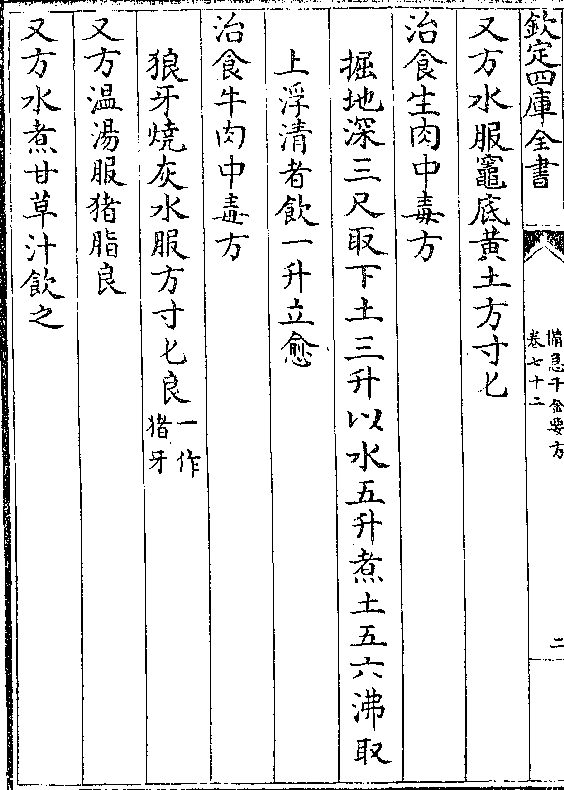 欽定四庫全書
備急千金要方
卷七十二
二
又方水服竈底黃土方寸匕
治食生肉中毒方
掘地深三尺取下土三升以水五升煮土五六沸取
上浮清者飲一升立愈
治食牛肉中毒方
狼牙燒灰水服方寸匕良一作猪牙
又方温湯服猪脂良
又方水煮甘草汁飲之